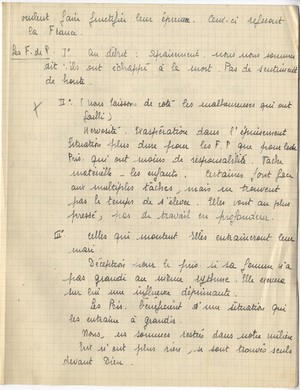 veulent faire fructifier leur épreuve. Ceux-ci referont
la France.
Les F. de P. : I° au début : épuisement. nous nous sommes
dit : ils ont échappé à la mort. Pas de sentiment
de honte.
II° : (nous laissons de côté les malheureuses qui ont
failli)
Nervosité. Exaspération dans l'épuisement
Situation plus dure pour les F.P que pour les
Pris. qui ont moins de responsabilité. Tache
matérielle - les enfants. Certaines font face
aux multiples tâches, mais ne trouvent
pas le temps de s'élever. Elles vont au plus
pressé, pas de travail en profondeur.
III° celles qui montent. Elles entraineront leur
mari.
Déception pour le pris. si sa femme n'a
pas grandi au même rythme. Elle exercera
sur lui une influence déprimante.
Les Pris. bénéficient d'une situation qui
les entraine à grandir.
Nous, en sommes restées dans notre milieu.
Eux n'ont plus rien, se sont trouvés seuls
devant Dieu.